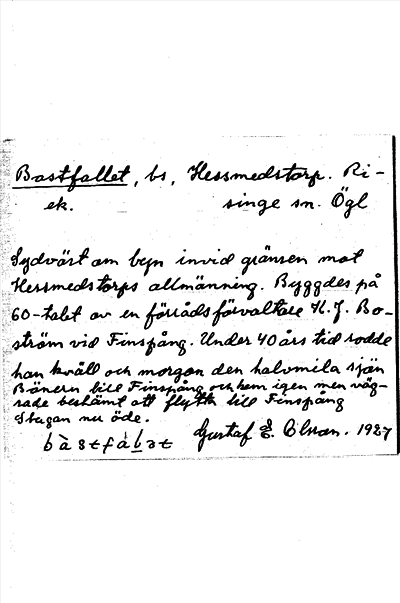 Bastfallet, bs, Hessmedstorp. Ri-
ek. singe sn. Ögl
Sydväst om byn invid gränsen mot
Hessmedstorps allmänning. Byggdes på
60-talet av en förrådsförvaltare K. J. Bo-
ström vid Finspång. Under 40 års tid rodde
han kväll och morgon den halvmila sjön
Bönnern till Finspång och hem igen men väg-
rade bestämt att flytta till Finspång
Stugan nu öde.
Gustaf E. Olson. 1927